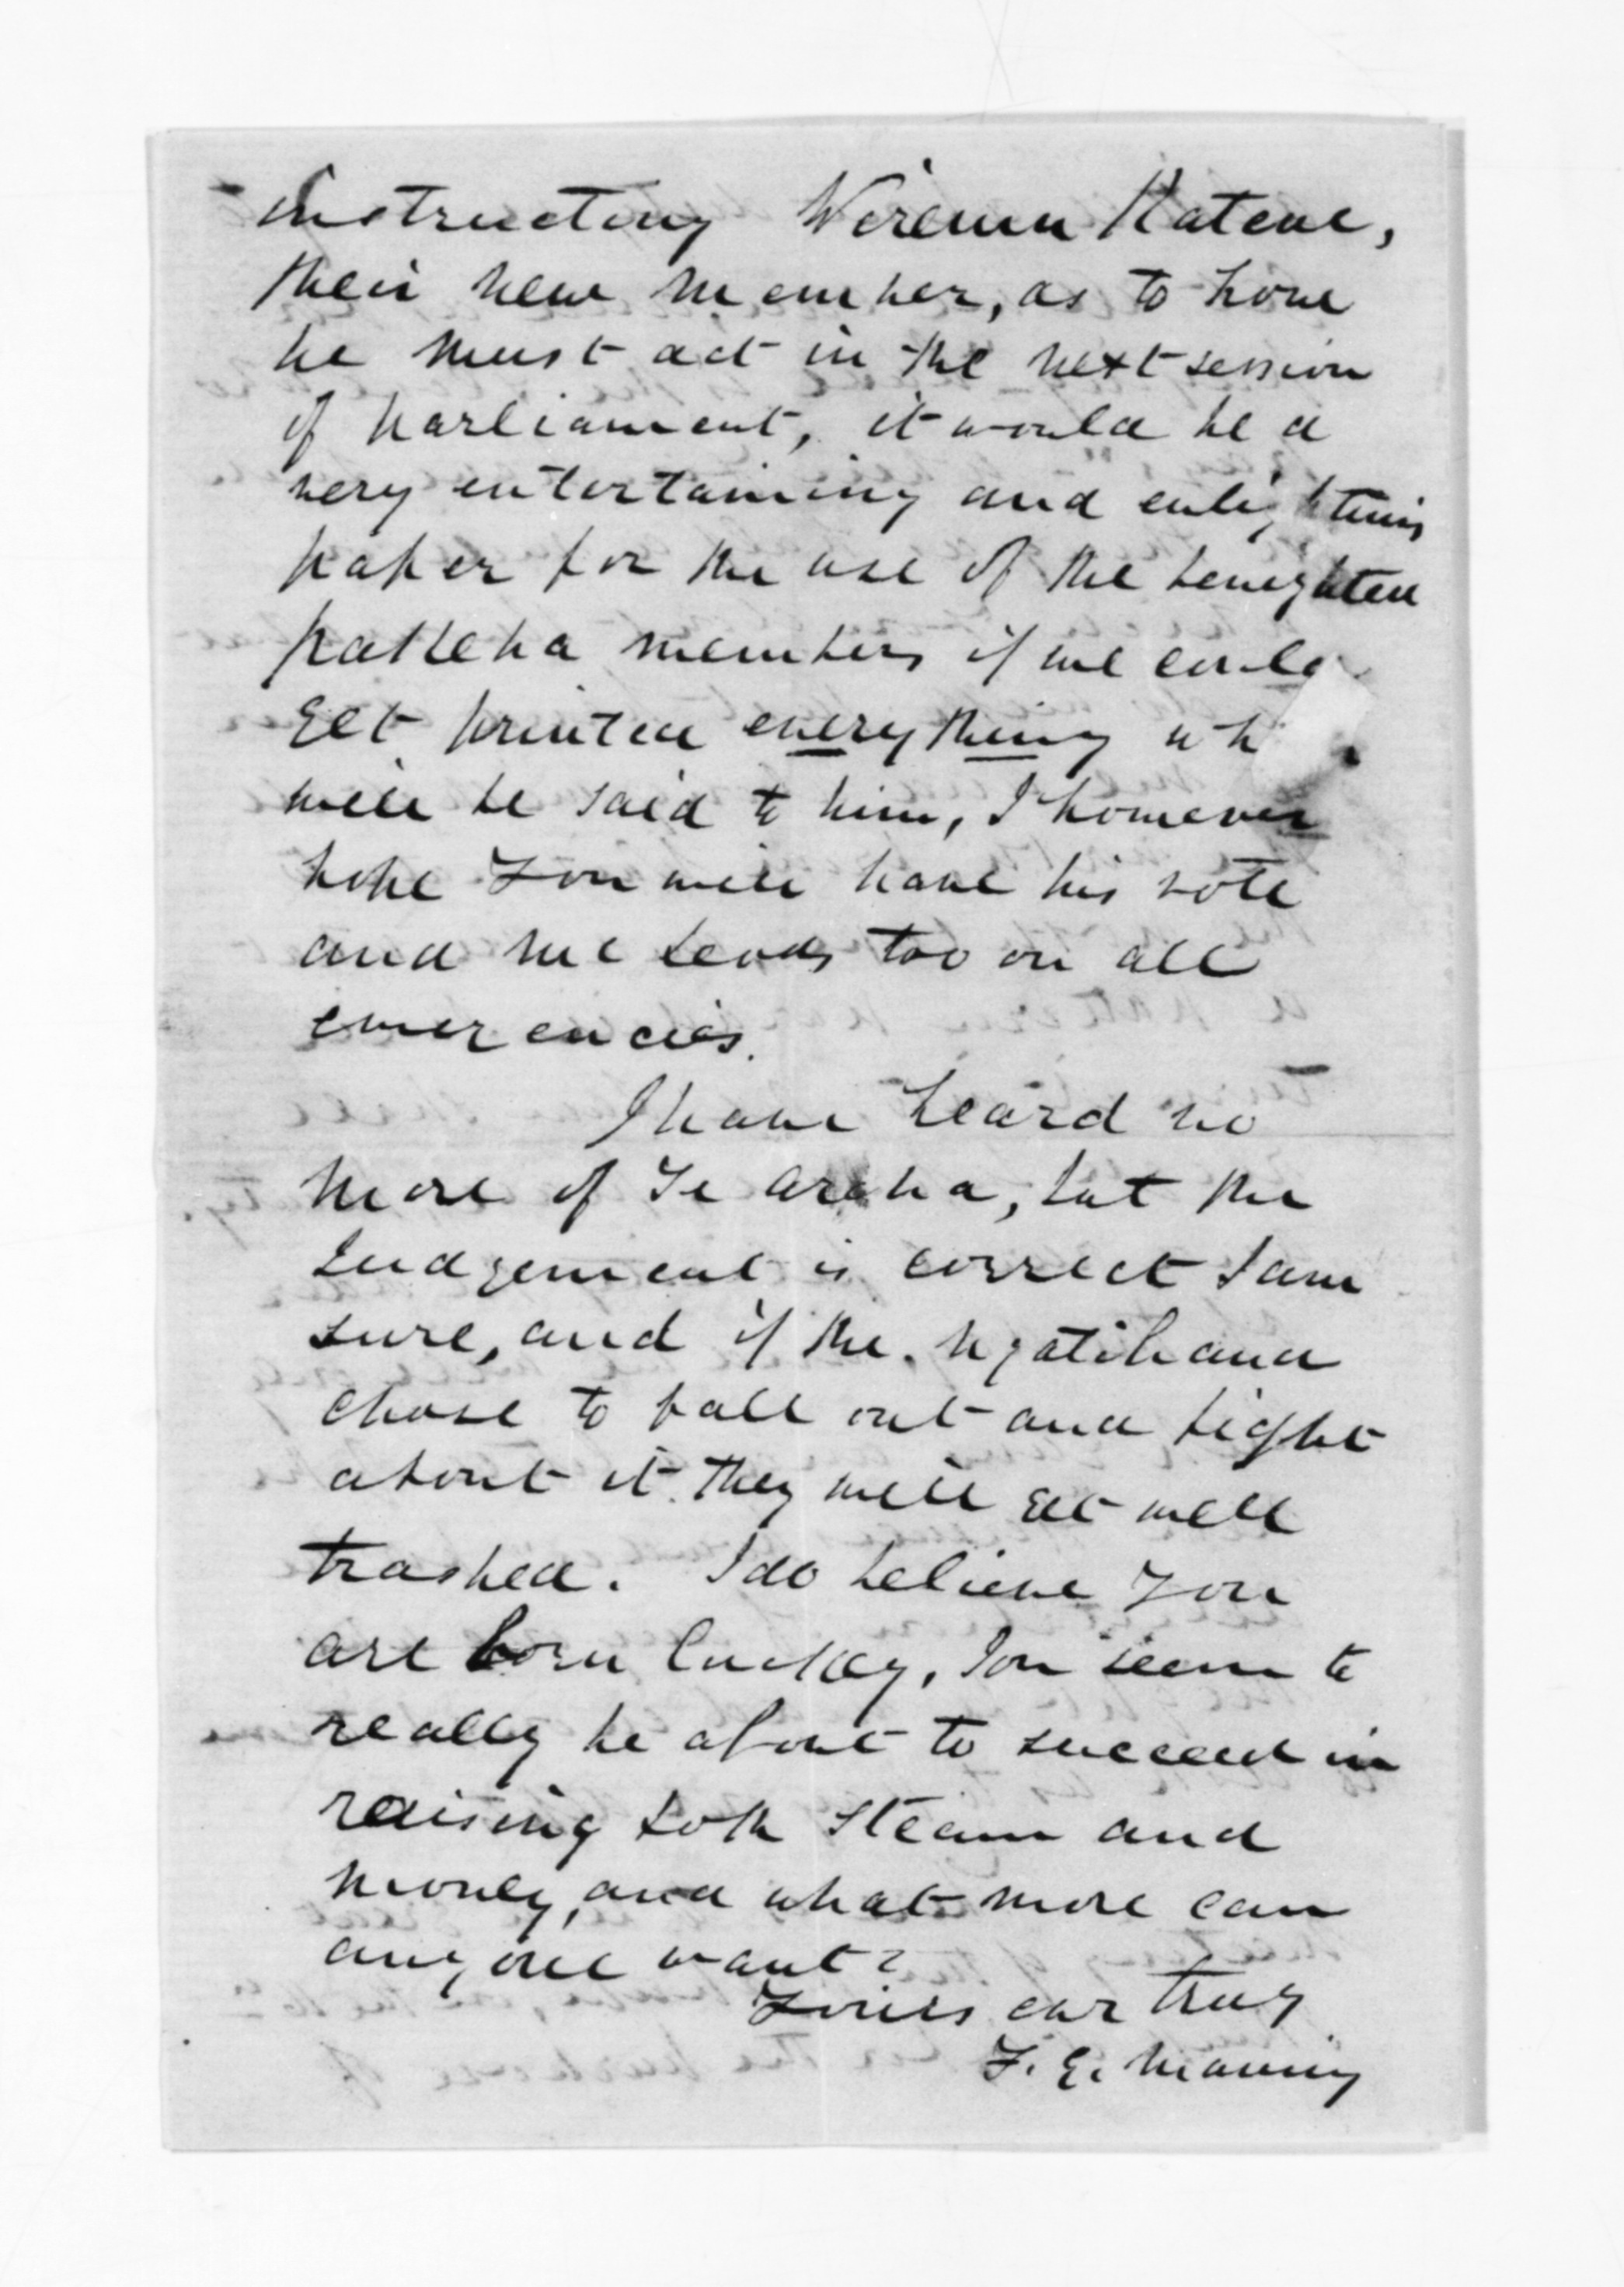 instructing Wiremu Katene,
their new member, as to how
he must act in the next session
of parliament, it would be a
very entertaining and enlightning
paper for the use of the benighted
pakeha members if we could
get printed everything wh
will be said to him, I however
hope you will have his vote
and me leads too on all
emergencies.
I have heard no
more of Te aroha, but the
Judgement is correct I am
sure, and if the Ngatihaua
chose to fall out and fight
about it they will get well
trashed. I do believe you
are born lucky, you seem to
really be about to succeed in
raising both steam and
money, and what more can
any one want?
Yours ever truly
F. E. Maning